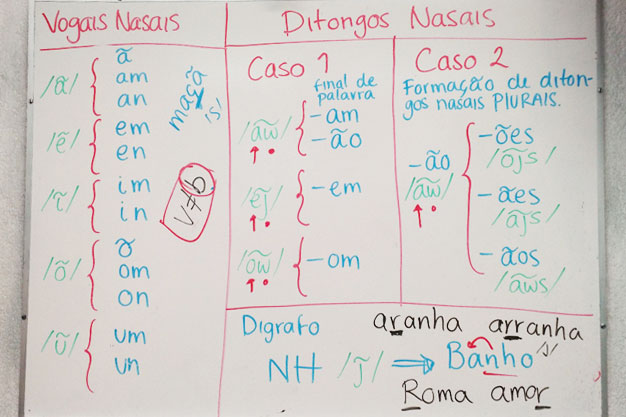 Vogais Nasais
/ã/
ã
am
an
/ẽ/
em
en
/ĩ/
im
in
/õ/
õ
om
on
/ũ/
um
un
maçã
/s/
V≠b
Ditongos Nasais
Caso 1
final de
palavra
/ãw̃/
-am
-ão
/ẽj̃/
-em
/õw̃/
-om
Caso 2
Formação de diton-
gos nasais PLURAIS.
-ão
/ãw̃/
-ões
/õj̃s/
-ães
/ãj̃s/
-ãos
/ãw̃s/
Digrafo
aranha arranha
NH /j̃/ ⇒ Banho
Roma amor